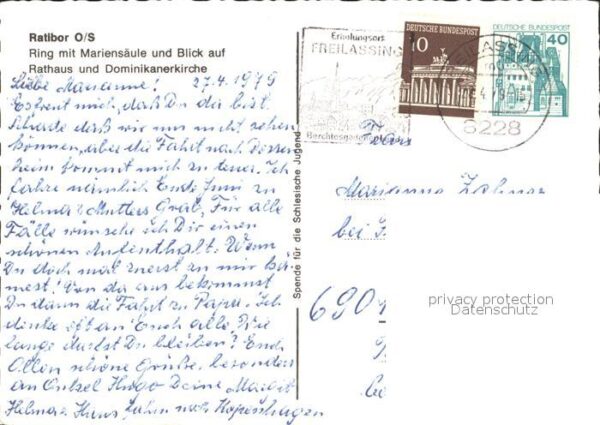 Ratibor O/S
Ring mit Mariensäule und Blick auf
Rathaus und Dominikanerkirche
Liebe Marianne! 27.4.1979
Es freut mich, daß Du da bist.
Schade daß wir uns nicht sehen
können, aber die Fahrt nach Dossen
heim kommt mich zu teuer. Ich
fahre nämlich Ende Juni zu
Helma's Mutters Grab. Für alle
Fälle wünsche ich Dir einen
schönen Aufenthalt. Wenn
Du doch mal zuerst zu mir kä-
mest! Von da aus bekommst
Du dann die Fahrt zu Papa. Ich
denke oft an Euch alle. Wie
lange darfst Du bleiben? Euch
Allen schöne Grüße, besonders
an Onkel Hugo Deine Margit
Helma u. Hans fahren nach Kopenhagen
Spende für die Schlesische Jugend
Erholungsort
FREILASSING
Berchtesgadener
10
DEUTSCHE BUNDESPOST
DEUTSCHE BUNDESPOST
40
FREILASSING
8228
Marianne
bei
690
privacy protection
Datenschutz